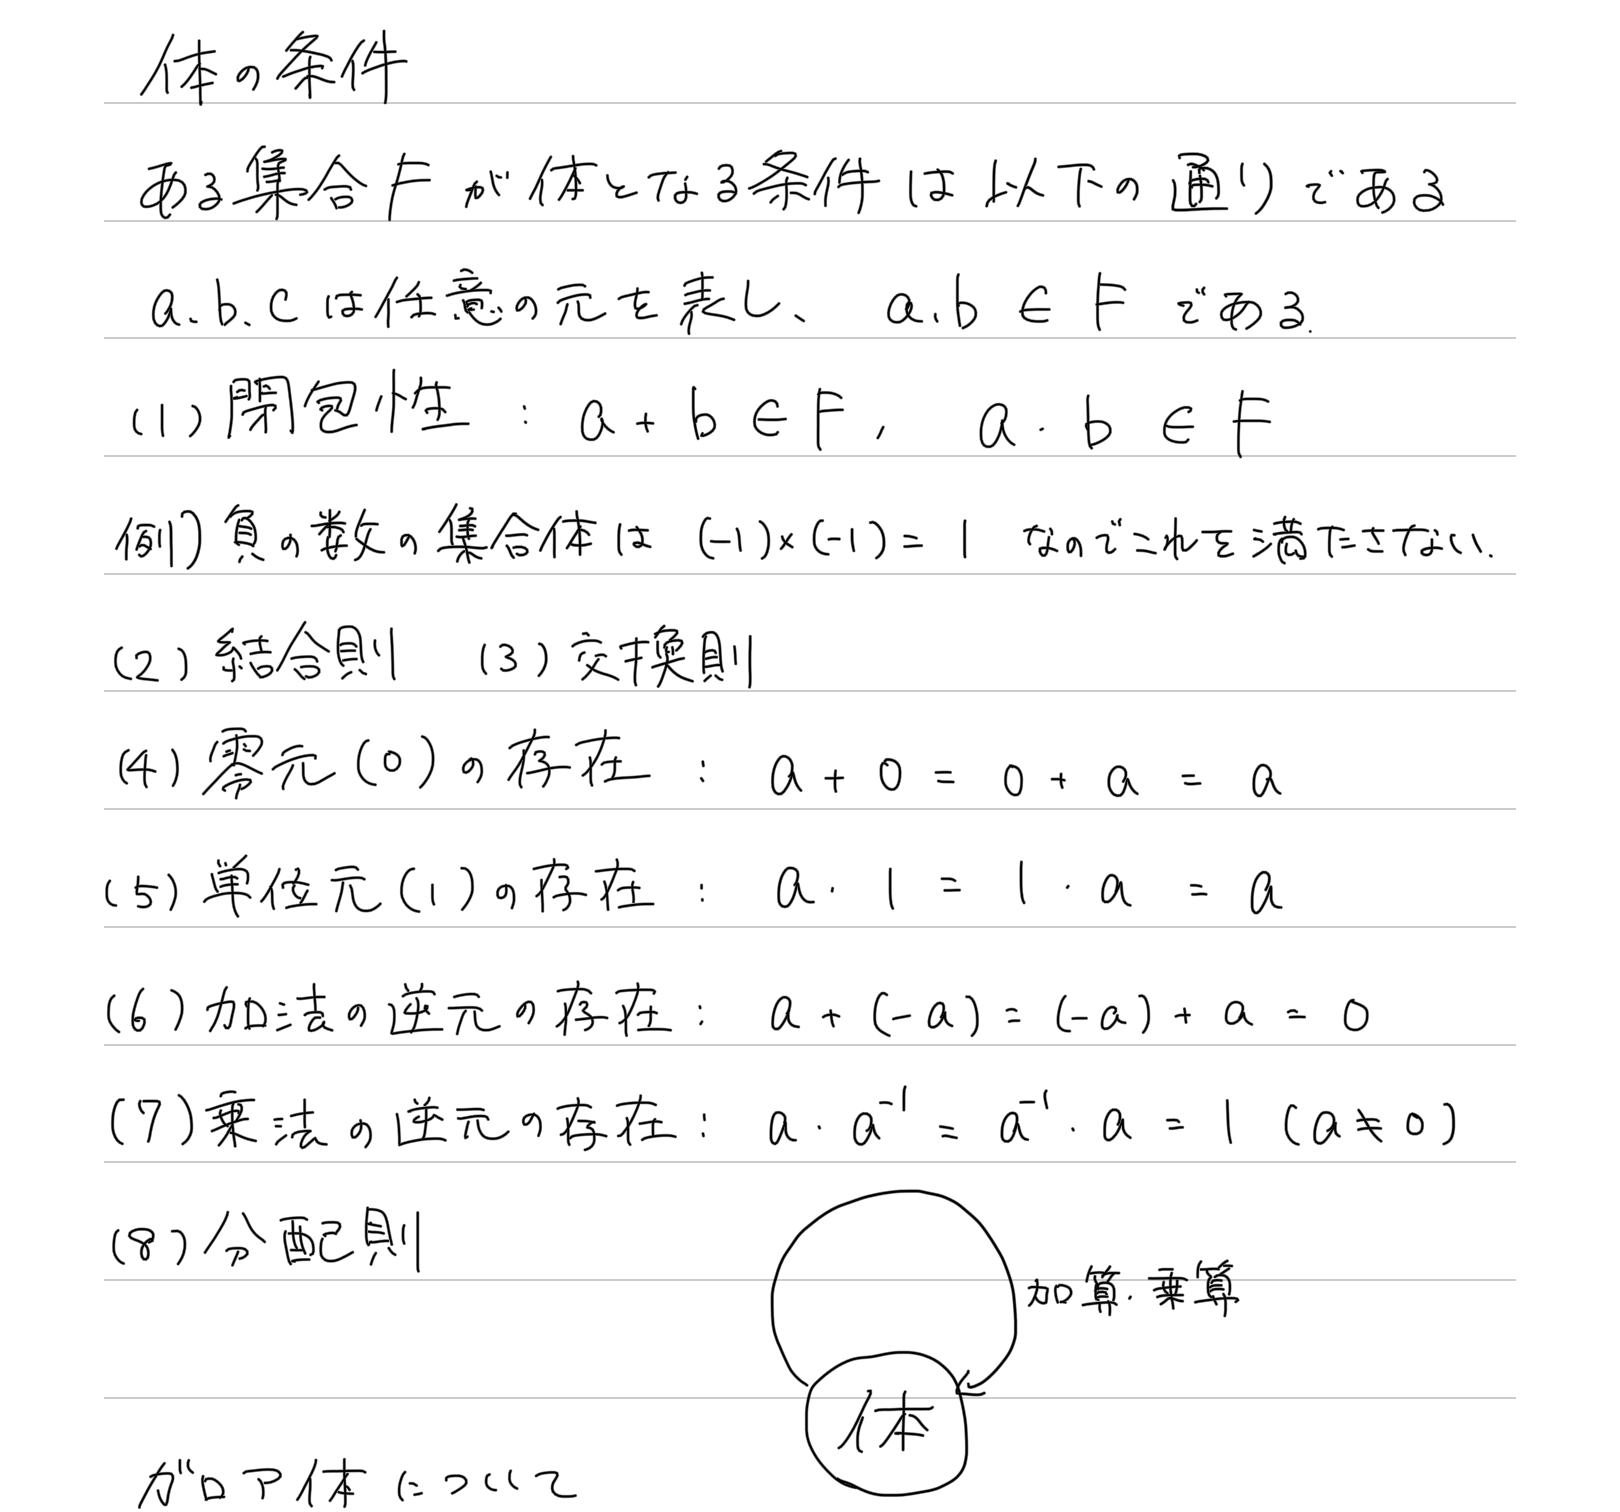 体の条件
ある集合Fが体となる条件は以下の通りである
a.b.cは任意の元を表し、 a.b ∈ F である.
(1) 閉包性 : a + b ∈ F, a · b ∈ F
例) 負の数の集合体は (-1)×(-1) = 1 なのでこれを満たさない.
(2) 結合則 (3) 交換則
(4) 零元(0)の存在 : a + 0 = 0 + a = a
(5) 単位元(1)の存在 : a · 1 = 1 · a = a
(6) 加法の逆元の存在 : a + (-a) = (-a) + a = 0
(7) 乗法の逆元の存在 : a · a⁻¹ = a⁻¹ · a = 1 (a ≠ 0)
(8) 分配則
加算·乗算
体
ガロア体について